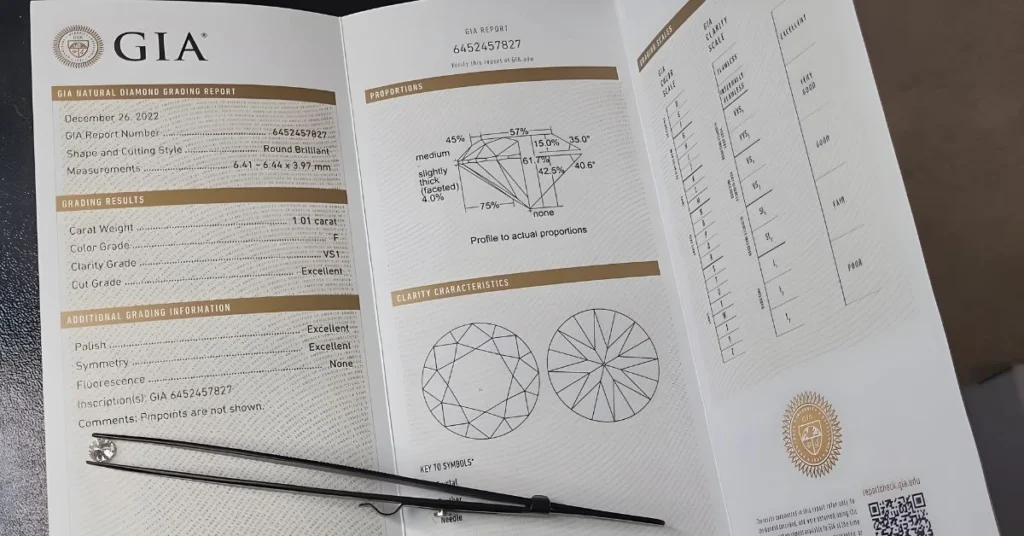 GIA
GIA NATURAL DIAMOND GRADING REPORT
December 26, 2022
GIA Report Number 6452457827
Shape and Cutting Style Round Brilliant
Measurements 6.41 - 6.44 x 3.97 mm
GRADING RESULTS
Carat Weight 1.01 carat
Color Grade F
Clarity Grade VS1
Cut Grade Excellent
ADDITIONAL GRADING INFORMATION
Polish Excellent
Symmetry Excellent
Fluorescence None
Inscription(s): GIA 6452457827
Comments: Pinpoints are not shown.
GIA REPORT
6452457827
Verify this report at GIA.edu
PROPORTIONS
45%
57%
35.0°
15.0%
medium
61.7%
slightly
thick
(faceted)
4.0%
42.5%
40.6°
75%
none
Profile to actual proportions
CLARITY CHARACTERISTICS
KEY TO SYMBOLS*
Needle
GRADING SCALES
GIA
COLOR
SCALE
GIA
CLARITY
SCALE
FLAWLESS
INTERNALLY
FLAWLESS
VVS1
VVS2
VS1
VS2
SI1
SI2
I1
I2
I3
EXCELLENT
VERY
GOOD
GOOD
FAIR
POOR
reportcheck.gia.edu